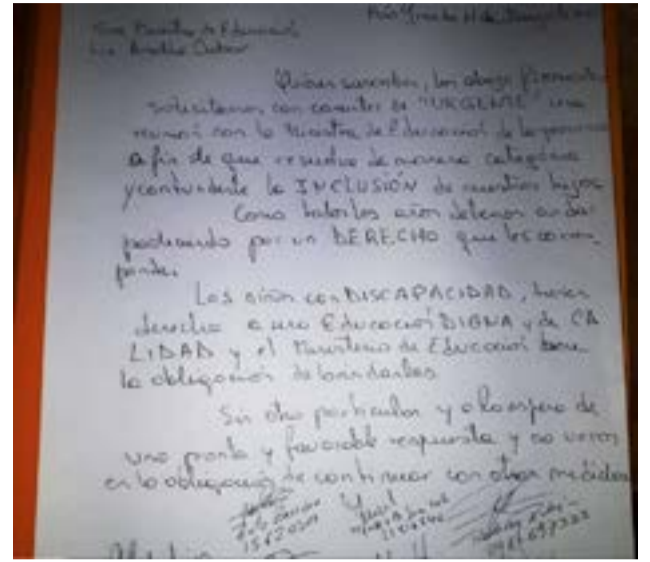 Sra Ministra de Educación
Quienes suscriben, los abajo firmantes
solicitamos con caracter de "URGENTE" una
reunión con la Ministra de Educación de la provincia
a fin de que resuelva de manera categórica
y contundente la INCLUSIÓN de nuestros hijos
Como todos los años debemos andar
por un DERECHO que les corres
ponde.
Los niños con DISCAPACIDAD, tienen
derecho a una Educación DIGNA y de CA
LIDAD y el Ministerio de Educación tiene
la obligación de brindarles
Sin otro particular y a la espera de
una pronta y favorable respuesta y no vernos
en la obligación de continuar con otras medidas